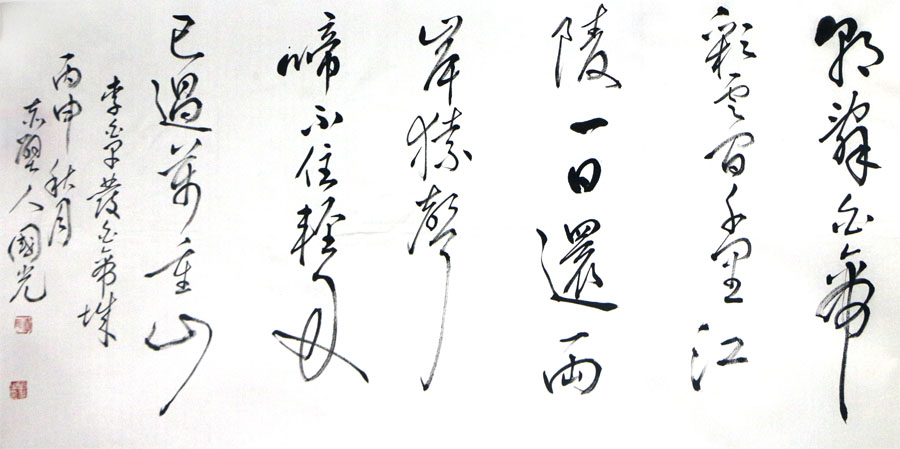 朝辭白帝
彩云間千里江
陵一日還兩
岸猿聲
啼不住輕舟
已過萬重山
李白早發白帝城
丙申秋月
赤壁人國光